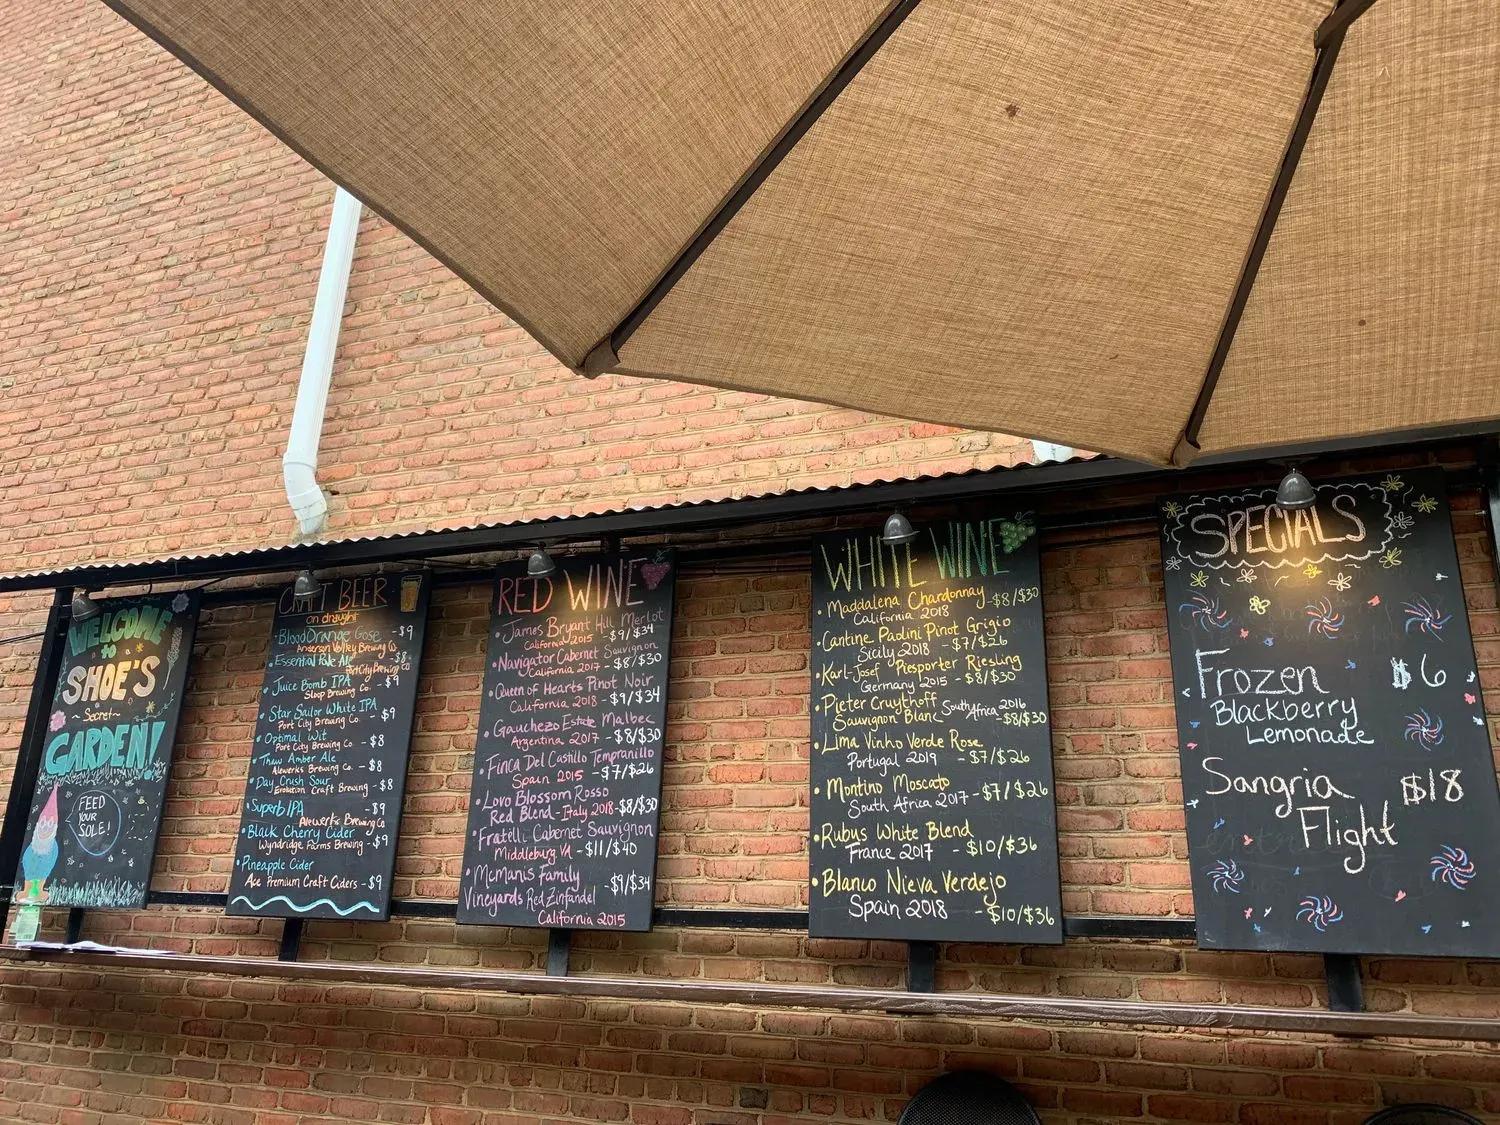 WELCOME
to
SHOE'S
~Secret~
GARDEN!
FEED
YOUR
SOLE!
CRAFT BEER
on draught
• Blood Orange Gose - $9
Anderson Valley Brewing Co.
• Essential Pale Ale - $8
Port City Brewing Co
• Juice Bomb IPA - $9
Sloop Brewing Co.
• Star Sailor White IPA
Port City Brewing Co. - $9
• Optimal Wit
Port City Brewing Co - $8
• Thaw Amber Ale
Aleworks Brewing Co. - $8
• Day Crush Sour
Evolution Craft Brewing - $8
• Superb IPA - $9
Alewerks Brewing Co
• Black Cherry Cider
Wyndridge Farms Brewing - $9
• Pineapple Cider
Ace Premium Craft Ciders - $9
RED WINE
• James Bryant Hill Merlot
California 2015 - $9/$34
• Navigator Cabernet Sauvignon
California 2017 - $8/$30
• Queen of Hearts Pinot Noir
California 2018 - $9/$34
• Gauchezo Estate Malbec
Argentina 2017 - $8/$30
• Finca Del Castillo Tempranillo
Spain 2015 - $7/$26
• Lovo Blossom Rosso
Red Blend - Italy 2018 - $8/$30
• Fratelli Cabernet Sauvignon
Middleburg VA - $11/$40
• McManis Family
Vineyards Red Zinfandel - $9/$34
California 2015
WHITE WINE
• Maddalena Chardonnay - $8/$30
California 2018
• Cantine Paolini Pinot Grigio
Sicily 2018 - $7/$26
• Karl-Josef Piesporter Riesling
Germany 2015 - $8/$30
• Pieter Cruythoff South Africa 2016
Sauvignon Blanc - $8/$30
• Lima Vinho Verde Rose
Portugal 2019 - $7/$26
• Montino Moscato
South Africa 2017 - $7/$26
• Rubus White Blend
France 2017 - $10/$36
• Blanco Nieva Verdejo
Spain 2018 - $10/$36
SPECIALS
Frozen $6
Blackberry
Lemonade
Sangria $18
Flight